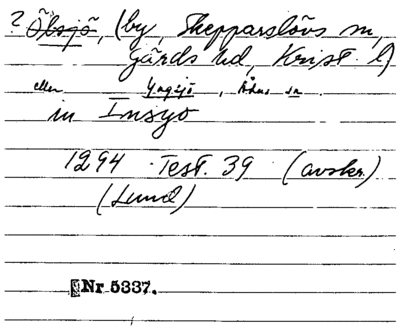 ? Öbsjö, (by, Skepparslövs sn,
Gärds hd, Krist. l)
eller Yngsjö, Åhus sn
in Insyo
1294 Test. 39 (avskr.)
(Lund)
Nr 5337.